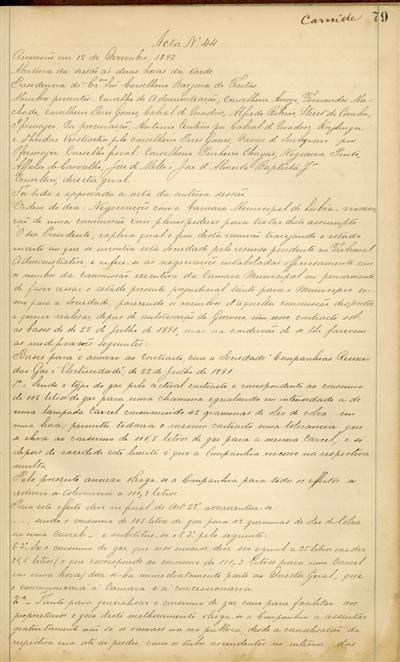 Carnide 79
Acta Nº 44
Reunião em 12 de Dezembro, 1892
Abertura da sessão ás duas horas da tarde
Presidencia do Exmo Snr Conselheiro Barjona de Freitas
Membros presentes: Conselho de Administração, Conselheiro Annes, Fernandes Ma-
chado, Conselheiro Pires Gomes, Cabral de Quadros, Alfredo Ribeiro, Street da Cunha,
Por procuração, Antonio Centeno por Cabral de Quadros
e Theodor pelo conselheiro Pires Gomes, Baron de por
Conselho fiscal: Conselheiro Pinheiro Chagas, Nogueira Pinto,
de Carvalho, José de Mello, José d'Almeida Baptista Jor
director geral.
Foi lida e approvada a acta da anterior sessão
Ordem do dia: Negociação com a Camara Municipal de Lisboa, nomea-
ção de uma commissão com plenos poderes para tratar d'este assumpto
O Snr Presidente, explica qual o fim desta reunião traçando o estado
incerto em que se encontra esta Sociedade pelo recurso pendente no Tribunal
Administrativo e refere-se as negociações entaboladas officiosamente com
o membro da commissão executiva da Camara Municipal no pensamento
de fazer cessar o estado presente prejudicial tanto para o Municipio co-
mo para a Sociedade, parecendo os membros d'aquella commissão dispostos
a querer realisar, depois de autorisação do Governo, um novo contracto sob
as bases do de 22 de Julho de 1891, mas na condição de se lhe fazerem
as modificações seguintes:
Bases para o annexo ao contracto com a Sociedade "Companhias Reunidas
das Gaz e Electricidade", de 22 de Julho de 1891
1ª - Sendo o typo de gaz pelo actual contracto o correspondente ao consumo
de 105 litros de gaz para uma chamma egualando em intensidade a de
uma lampada Carcel consumindo 42 grammas de oleo de colza em
uma hora; permitte todavia o mesmo contracto uma tolerancia que
a eleva ao consumo de 116,5 litros de gaz para a mesma Carcel, e só
depois de excedido este limite é que a Companhia incorre na respectiva
multa
Pelo presente annexo obriga-se a Companhia para todos os effeitos a
reduzir a tolerancia a 111,3 litros
Para este effeito deve no final do Artº 28º accrescentar-se
..... sendo o consumo de 105 litros de gaz para 42 grammas de oleo de Colza
ou uma Carcel - e substituir-se o § 3º pelo seguinte:
§ 3º Se o consumo de gaz que nos ensaios deve ser igual a 25 litros exceder
26,5 litros, (o que corresponde ao consumo de 111,3 litros para uma Carcel
em uma hora) dar-se-ha immediatamente parte ao Director Geral, que
o communicará á Camara e á concessionaria
2ª - Tanto para generalisar o consumo de gaz como para facilitar aos
proprietarios o goso deste melhoramento obriga-se a Companhia a assentar
gratuitamente não só os ramaes na via publica, desde a canalisação da
respectiva rua até ao predio, como os tubos ascendentes no interior das